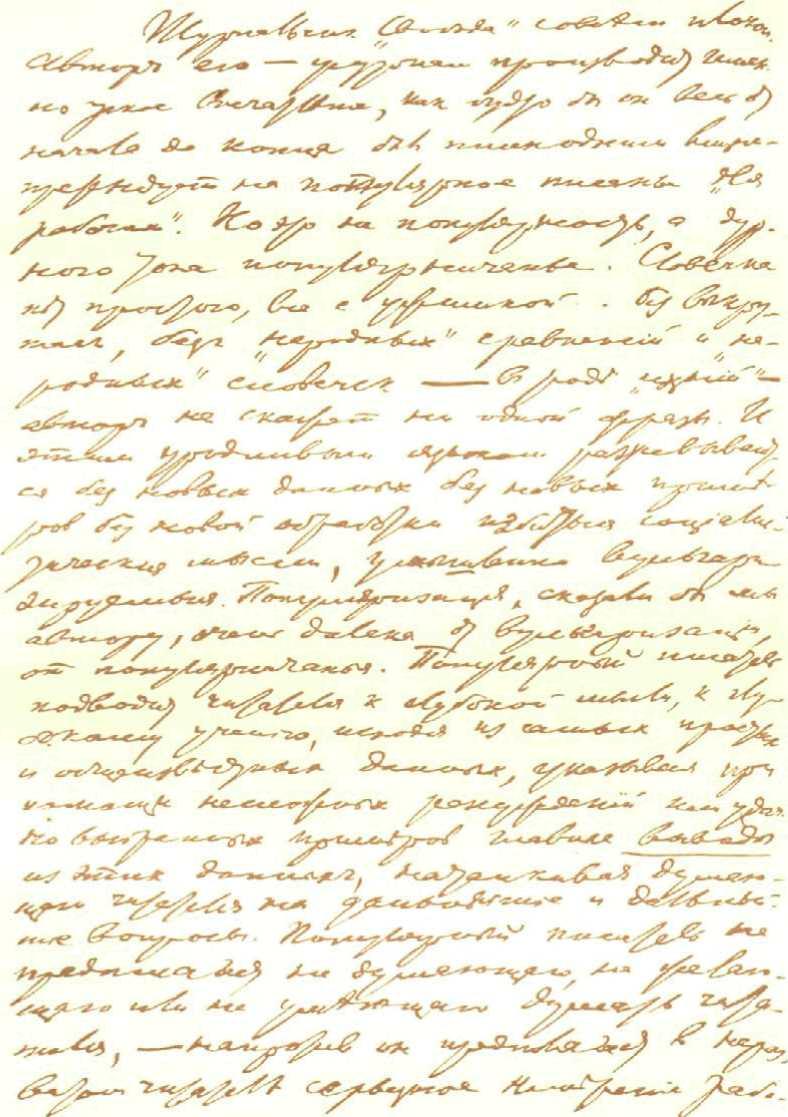 Журнальчик „Свобода" совсем плохой.
Авторъ его — журнал производит имен-
но такое впечатление, как будто бы он весь от
начала до конца был писан одним лицом – 
претендует на популярное писание „для
рабочих". Но это не популярность, а дур-
ного тона популярничанье. Словечка
нет простого, все с ужимкой.. Без выкру-
тас, безъ „народных" сравнений и „на-
родных" словечек — в роде „ихний" —
авторъ не скажет ни одной фразы. И
этим уродливым языком разжевывают-
ся без новых данных без новых приме-
ров без новой обработки избитыя социали-
стическия мысли, умышленно вульгари-
зируемыя. Популяризация, сказали бы мы
автору, очень далека от вульгаризации,
от популярничанья. Популярный писатель
подводит читателя к глубокой мысли, к глу-
бокому учению, исходя из самых простых
и общеизвестных данных, указывая при
помощи несложных рассуждений или удач-
но выбранных примеров главные выводы
из этих данных, наталкивая думаю-
щего читателя на дальнейшие и дальней-
шие вопросы. Популярный писатель не
предполагает не думающего, не желаю-
щего или не умеющего думать чита-
теля, — напротив он предполагает в нераз-
витом читателе серьезное намерение рабо-